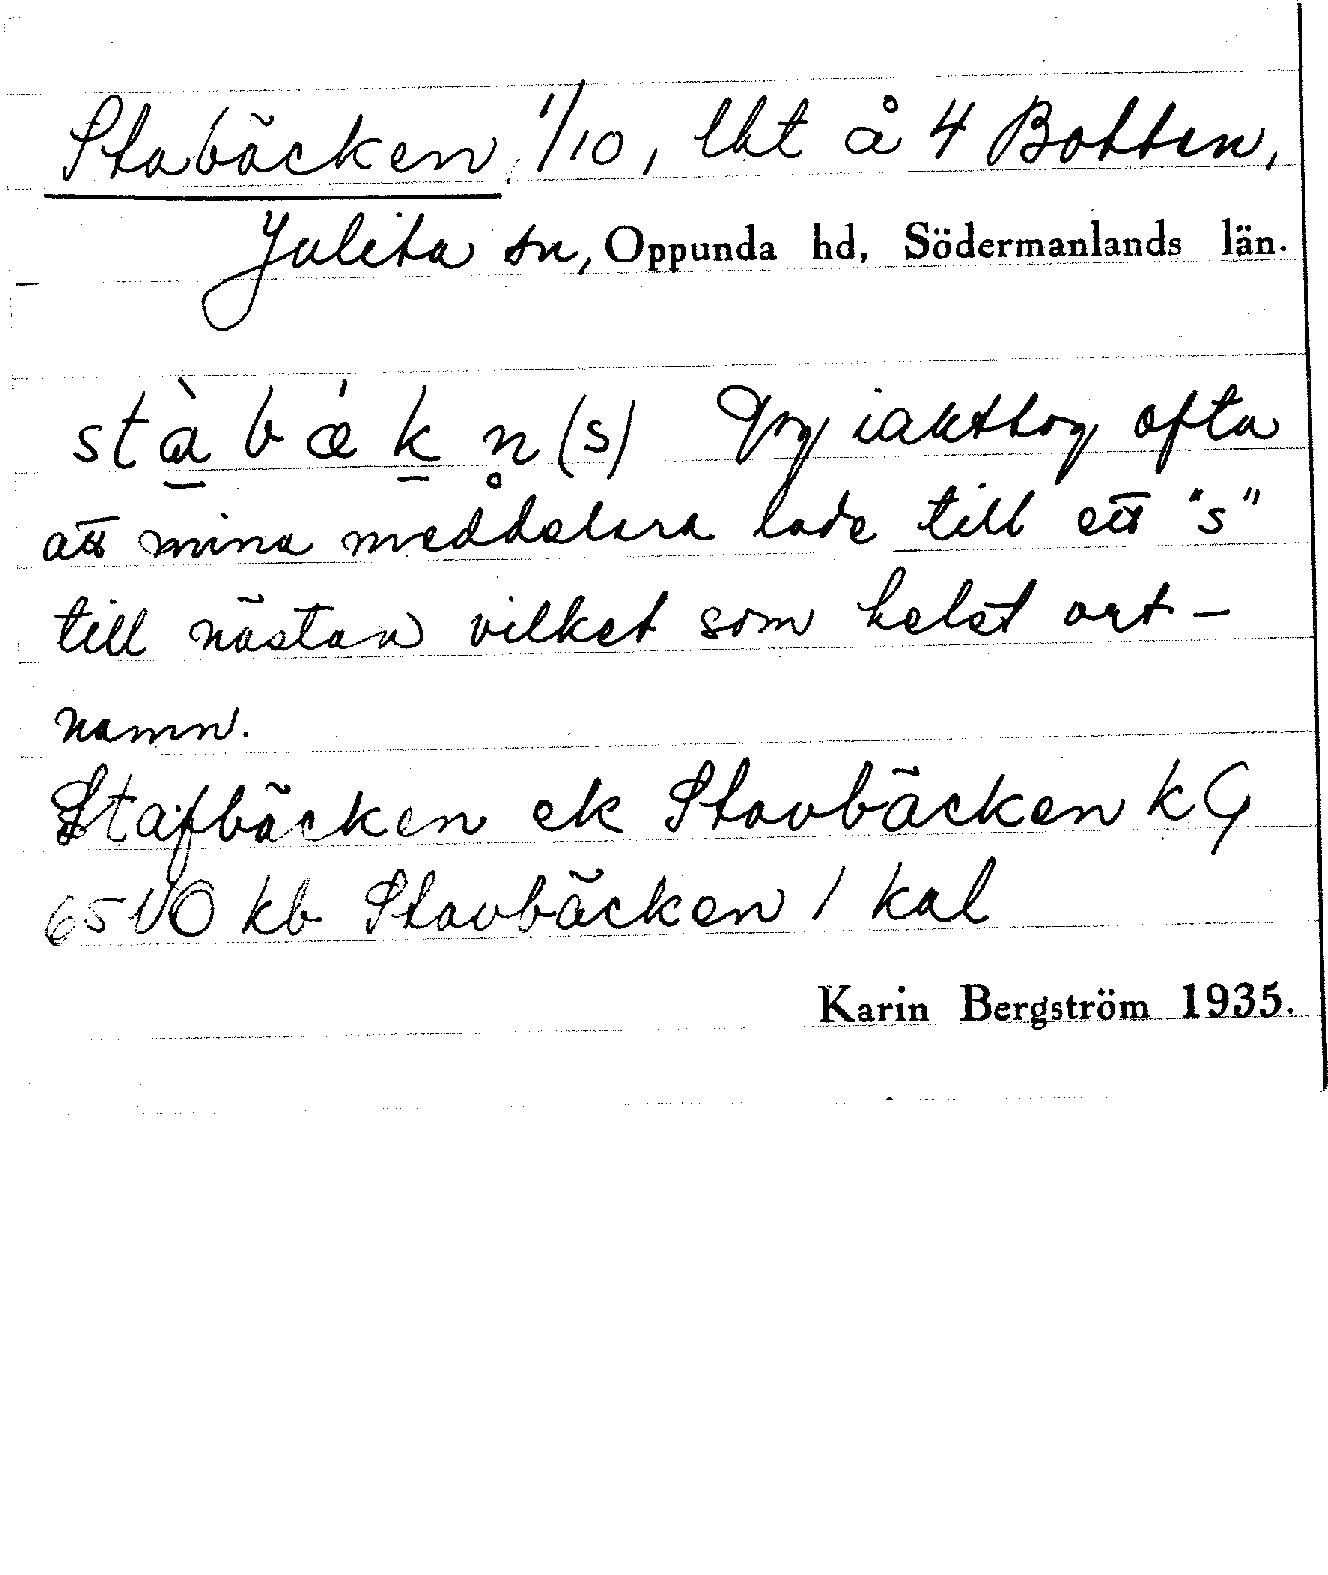 Stabäcken, 1/10, lht å 4 Botten,
Julita sn, Oppunda hd, Södermanlands län.
stàbǽkn̥(s) Jag iakttog ofta
att mina meddelare lade till ett "s"
till nästan vilket som helst ort-
namn.
Stafbäcken ek Stavbäcken kG
6510 kb Stavbäcken / kal
Karin Bergström 1935.